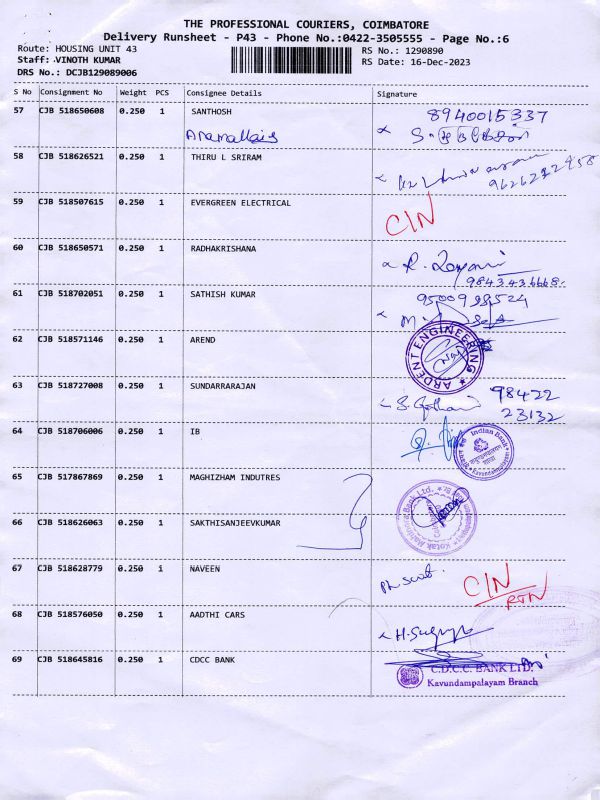 THE PROFESSIONAL COURIERS, COIMBATORE
Delivery Runsheet - P43 - Phone No.:0422-3505555 - Page No.:6
Route: HOUSING UNIT 43
Staff: VINOTH KUMAR
DRS No.: DCJB129089006
RS No.: 1290890
RS Date: 16-Dec-2023
S No Consignment No Weight PCS Consignee Details Signature
57 CJB 518650608 0.250 1 SANTHOSH 8940015337
58 CJB 518626521 0.250 1 THIRU L SRIRAM
59 CJB 518507615 0.250 1 EVERGREEN ELECTRICAL CIN
60 CJB 518650571 0.250 1 RADHAKRISHANA
61 CJB 518702051 0.250 1 SATHISH KUMAR
62 CJB 518571146 0.250 1 AREND ARDENT ENGINEERING
63 CJB 518727008 0.250 1 SUNDARRARAJAN 98422
23132
64 CJB 518706006 0.250 1 IB Indian Bank Kavundampalayam
65 CJB 517867869 0.250 1 MAGHIZHAM INDUTRES
66 CJB 518626063 0.250 1 SAKTHISANJEEVKUMAR Kotak Mahindra Bank Ltd.
67 CJB 518628779 0.250 1 NAVEEN CIN
RTN
68 CJB 518576050 0.250 1 AADTHI CARS
69 CJB 518645816 0.250 1 CDCC BANK C.D.C.C. BANK LTD.
Kavundampalayam Branch